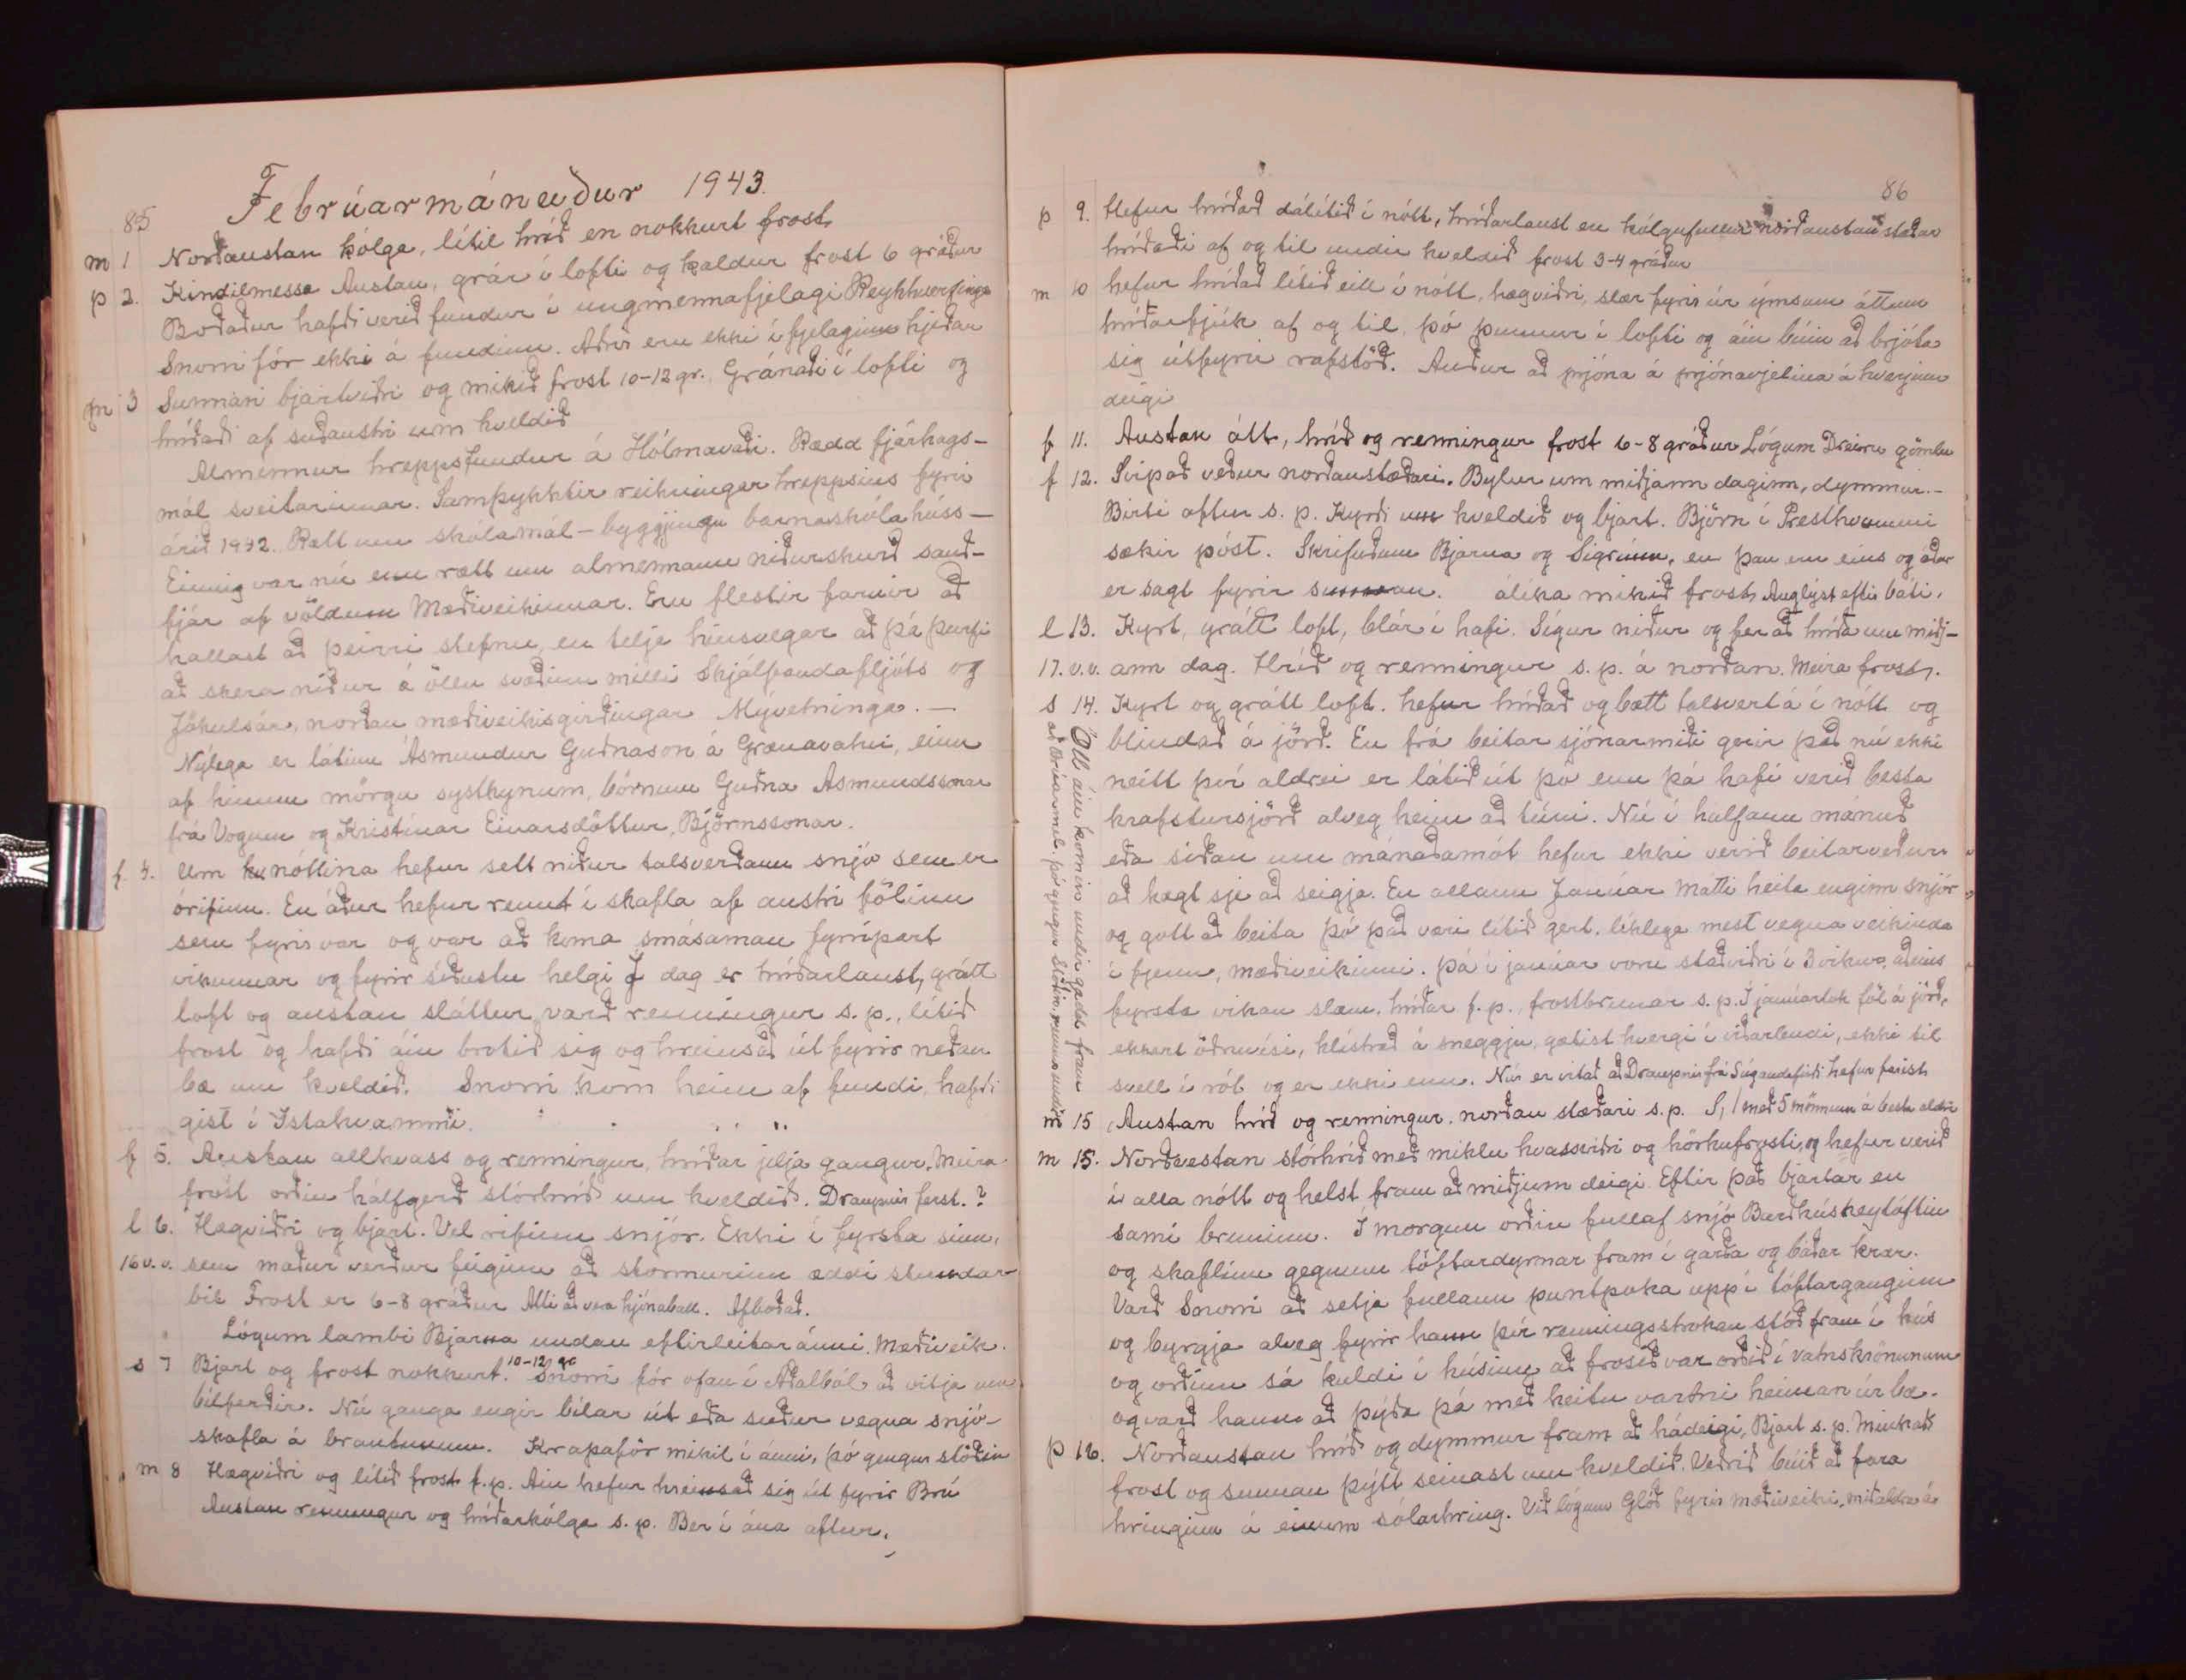 85
Febrúarmánuður 1943.
m 1 Norðaustan kólga, lítil hríð en nokkurt frost,
þ 2. Kindilmessa Austan, grár í lofti og kaldur frost 6 gráður
Boðaður hafði verið fundur í ungmennafjelagi Reykhverfinga
Snorri fór ekki á fundinn. Aðrir eru ekki í fjelaginu hjeðan
m 3 Sunnan bjartviðri og mikið frost 10-12 gr. Gránaði í lofti og
hríðaði af suðaustri um kveldið
Almennur hreppsfundur á Hólmavaði. Rædd fjárhags-
mál sveitarinnar. Samþykktir reikningar hreppsins fyrir
árið 1942. Rætt um skólamál - byggjingu barnaskólahúss -
Einnig var nú enn rætt um almennann niðurskurð sauð-
fjár af völdum Mæðiveikinnar. Eru flestir farnir að
hallast að þeirri stefnu, en telja hinsvegar að þá þurfi
að skera niður á öllu svæðinu milli Skjálfandafljóts og
Jökulsár, norðan mæðiveikisgirðingar Mývetninga. -
Nýlega er látinn Ásmundur Guðnason á Grænavatni, einn
af hinum mörgu systkynum, börnum Guðna Ásmundssonar
frá Vogum og Kristínar Einarsdóttur, Björnssonar.
f. 4. Um nóttina hefur sett niður talsverðann snjó sem er
órifinn. En áður hefur rennt í skafla af austri fölinu
sem fyrir var og var að koma smásaman fyrripart
vikunnar og fyrir síðustu helgi Í dag er hríðarlaust, grátt
loft og austan sláttur, varð renningur s.p., lítið
frost og hafði áin brotið sig og hreinsað út fyrir neðan
bæ um kveldið. Snorri kom heim af fundi, hafði
gist í Ystahvammi.
f 5. Austan allhvass og renningur, hríðar jelja gangur. Meira
frost orðin hálfgerð stórhríð um kveldið. Draupnir ferst.?
l 6. Hægviðri og bjart. Vel rifinn snjór. Ekki í fyrsta sinn,
16 v.v. sem maður verður feiginn að stormurinn æddi stundar-
bil Frost er 6-8 gráður Átti að vera hjónaball. Afboðað.
Lógum lambi Bjarna undan eftirleitaránni. Mæðiveik.
s 7 Bjart og frost nokkurt. 10-12 gr Snorri fór ofan í Aðalból að vitja um
bílferðir. Nú ganga engir bílar út eða suður vegna snjó-
skafla á brautunum. Krapaför mikil í ánni, þó gengur stöðin
m 8 Hægviðri og lítið frost f.p. Áin hefur hreinsað sig út fyrir Brú
Austan renningur og hríðarkólga s.p. Ber í ána aftur.
86
þ 9. Hefur hríðað dálítið í nótt, hríðarlaust en kólgufullur norðaustanstæðar
hríðaði af og til undir kveldið frost 3-4 gráður
m 10 hefur hríðað lítið eitt í nótt, hægviðri, slær fyrir úr ýmsum áttum
hríðarfjúk af og til, þó þunnur í lofti og áin búin að brjóta
sig útfyrir rafstöð. Auður að prjóna á prjónavjelina á hverjum
deigi
f 11. Austan átt, hríð og renningur frost 6-8 gráður Lógum Dreiru gömlu
f 12. Svipað veður norðaustæðari. Bylur um miðjann daginn, dymmur. -
Birti aftur s.p. Kyrði um kveldið og bjart. Björn í Presthvammi
sækir póst. Skrifuðum Bjarna og Sigrúnu, en þau eru eins og áður
er sagt fyrir sunnan. álíka mikið frost, Auglýst eftir báti.
l 13. Kyrt, grátt loft, blár í hafi. Sígur niður og fer að hríða um miðj-
17. v.v. ann dag. Hríð og renningur s.p. á norðan. Meira frost.
s 14. Kyrt og grátt loft. hefur hríðað og bætt talsvert á í nótt og
blindað á jörð. En frá beitar sjónarmiði gerir það nú ekki
neitt því aldrei er látið út þó enn þá hafi verið besta
krafstursjörð alveg heim að túni. Nú í hálfann mánuð
eða síðan um mánaðamót hefur ekki verið beitarveður
að hægt sje að seigja. En allann Janúar mátti heita enginn snjór
og gott að beita þó það væri lítið gert, líklega mest vegna veikinda
í fjenu, mæðiveikinni. Þá í janúar voru staðviðri í 3 vikur, aðeins
fyrsta vikan slæm, hríðar f.p., frostbrunar s.p. Í janúarlok föl á jörð,
ekkert öðruvísi, klístrað á sneggju, gætist hvergi í viðarlendi, ekki til
svell í rót og er ekki enn. Nú er vitað að Draupnir frá Súgandafirði hefur farist
m 15 Austan hríð og renningur, norðan stæðari s.p. með 5 mönnum á besta aldri
Öll áin komin undir gadd fram
að Brúarmel, þó gengur stöðin, rennur undir
m 15. Norðvestan stórhríð með miklu hvassviðri og hörkufrosti, og hefur verið
í alla nótt og helst fram að miðjum deigi Eftir það bjartar en
sami bruninn. Í morgun orðin full af snjó Barðhúsheytóftin
og skaflinn gegnum tóftardyrnar fram í garða og báðar krær.
Varð Snorri að setja fullann puntpoka upp í tóftarganginn
og byrgja alveg fyrir hann því renningsstrokan stóð fram í hús
og orðinn sá kuldi í húsinu að frosið var orðið í vatnskrönunum
og varð hann að þýða þá með heitu vatni heiman úr bæ.
þ 16. Norðaustan hríð og dymmur fram að hádeigi, Bjart s.p. Minkað
frost og sunnan þýtt seinast um kveldið. Veðrið búið að fara
hringinn á einum sólarhring. Við lógum Glóð fyrir mæðiveiki, miðaldra á